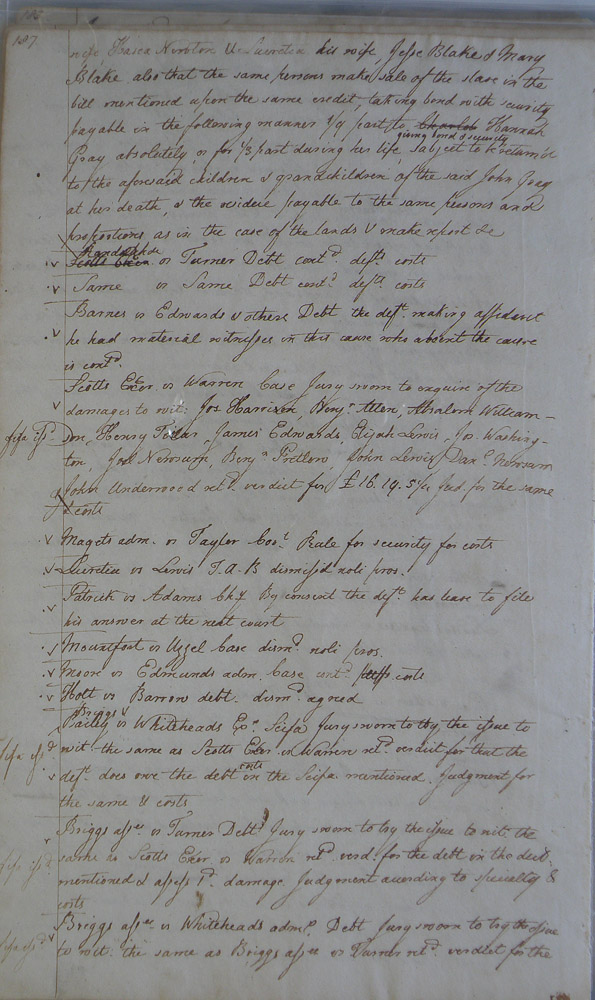 187
wife, Hasea Newton & Lucretia his wife, Jesse Blake & Mary
Blake also that the same persons make sale of the slave in the
bill mentioned upon the same credit, taking bond with security
payable in the following manner 1/9 part to Hannah
giving bond & security
Gray absolutely, or for 1/3 part during her life, subject to be return'd
to the aforesaid children & grandchildren of the said John Gray
at her death, & the residue payable to the same persons and
proportions as in the case of the lands & make report &c
Randolph &c
vs Turner Debt contd. defts. costs
Same vs Same Debt contd. defts costs
Barnes vs Edwards & others Debt the deft. making affidavit
he had material witnesses in this cause who absent the cause
is contd.
Scotts Exor vs Warren Case Jury sworn to enquire of the
damages to wit: Jos Harrison, Benj. Allen, Absalom William-
fifa issd. son, Henry, James Edwards, Elijah Lewis, Jos. Washing-
ton, Joel Newsum, Benja. Pretlow, John Lewis, Danl. Newsum
John Underwood retd. verdict for £16.14.5 1/4 Jud. for the same
& costs
Magets adm. vs Taylor Cost. Rule for security for costs
Lucretia vs Lewis T.A.B dismissd noli pros.
Patrick vs Adams Chy. By consent the deft. has leave to file
his answer at the next court
Mountfort vs Uzzel Case dismd. noli pros.
Moore vs Edmunds adm. Case contd. costs
Holt vs Barrow debt. dismd. agreed
Briggs
Bailey vs Whiteheads Exr. Scifa Jury sworn to try the issue to
fifa issd wit the same as Scotts Exor vs Warren retd. verdict for that the
deft. does owe the debt costs in the Scifa mentioned. Judgment for
the same & costs
Briggs assee vs Turner Debt Jury sworn to try the issue to wit: the
fifa issd. same as Scotts Exor. vs Warren retd. verd. for the debt in the decl.
mentioned & assess 1d. damage. Judgment according to specialty &
costs
Briggs assee vs Whiteheads adm. Debt Jury sworn to try the issue
fifa issd to wit: the same as Briggs assee vs Turner retd. verdict for the